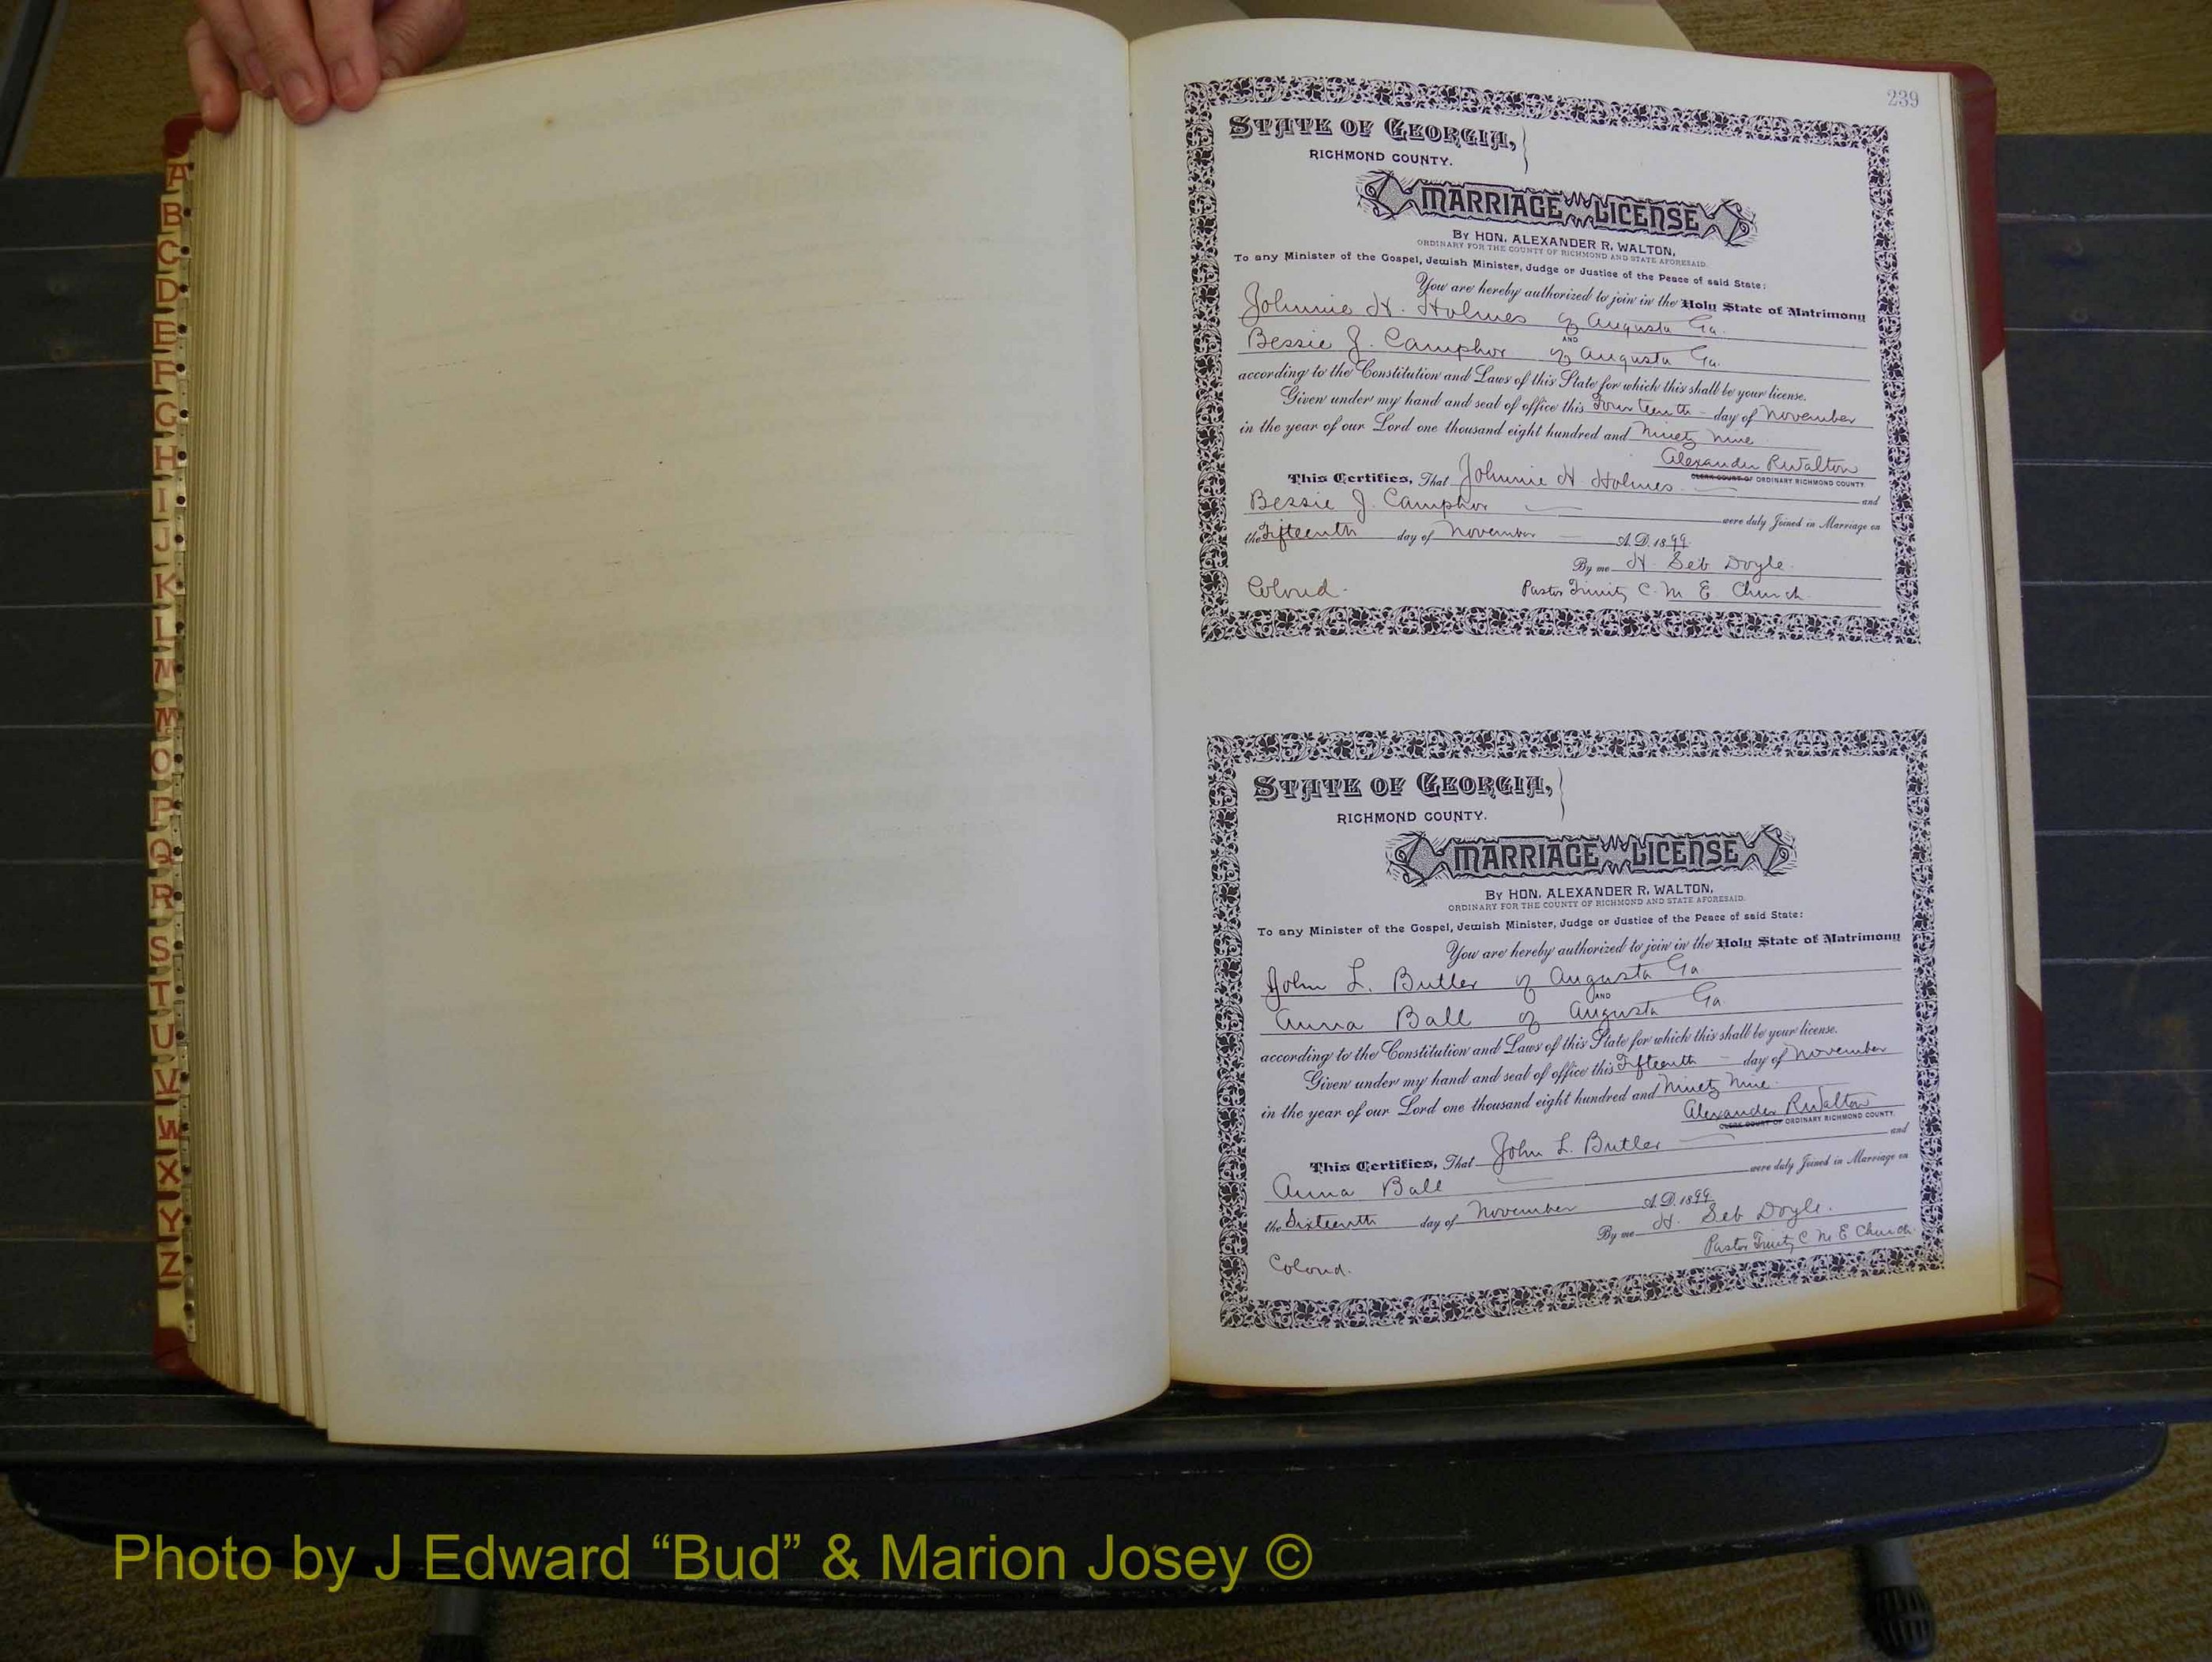 A
B
C
D
E
F
G
H
I
J
K
L
M
M
O
P
Q
R
S
T
U
V
W
X
Y
Z
239
STATE OF GEORGIA,
RICHMOND COUNTY.
MARRIAGE LICENSE
BY HON. ALEXANDER R. WALTON,
ORDINARY FOR THE COUNTY OF RICHMOND AND STATE AFORESAID.
To any Minister of the Gospel, Jewish Minister, Judge or Justice of the Peace of said State:
You are hereby authorized to join in the Holy State of Matrimony
Johnnie H. Holmes of Augusta Ga.
AND
Bessie J. Camphor of Augusta Ga.
according to the Constitution and Laws of this State for which this shall be your license.
Given under my hand and seal of office this Fourteenth day of November
in the year of our Lord one thousand eight hundred and Ninety Nine
Alexander R Walton
CLERK COURT OF ORDINARY RICHMOND COUNTY.
This Certifies, That Johnnie H. Holmes and
Bessie J. Camphor were duly Joined in Marriage on
the Fifteenth day of November A. D. 1899
By me H. Seb Doyle.
Colored. Pastor Trinity C. M E Church.
STATE OF GEORGIA,
RICHMOND COUNTY.
MARRIAGE LICENSE
BY HON. ALEXANDER R. WALTON,
ORDINARY FOR THE COUNTY OF RICHMOND AND STATE AFORESAID.
To any Minister of the Gospel, Jewish Minister, Judge or Justice of the Peace of said State:
You are hereby authorized to join in the Holy State of Matrimony
John L. Butler of Augusta Ga
AND
Anna Ball of Augusta Ga.
according to the Constitution and Laws of this State for which this shall be your license.
Given under my hand and seal of office this Fifteenth day of November
in the year of our Lord one thousand eight hundred and Ninety Nine.
Alexander R Walton
CLERK COURT OF ORDINARY RICHMOND COUNTY.
This Certifies, That John L. Butler and
Anna Ball were duly Joined in Marriage on
the Sixteenth day of November A. D. 1899
By me H. Seb Doyle.
Pastor Trinity C M E Church.
Colored.
Photo by J Edward “Bud” & Marion Josey ©